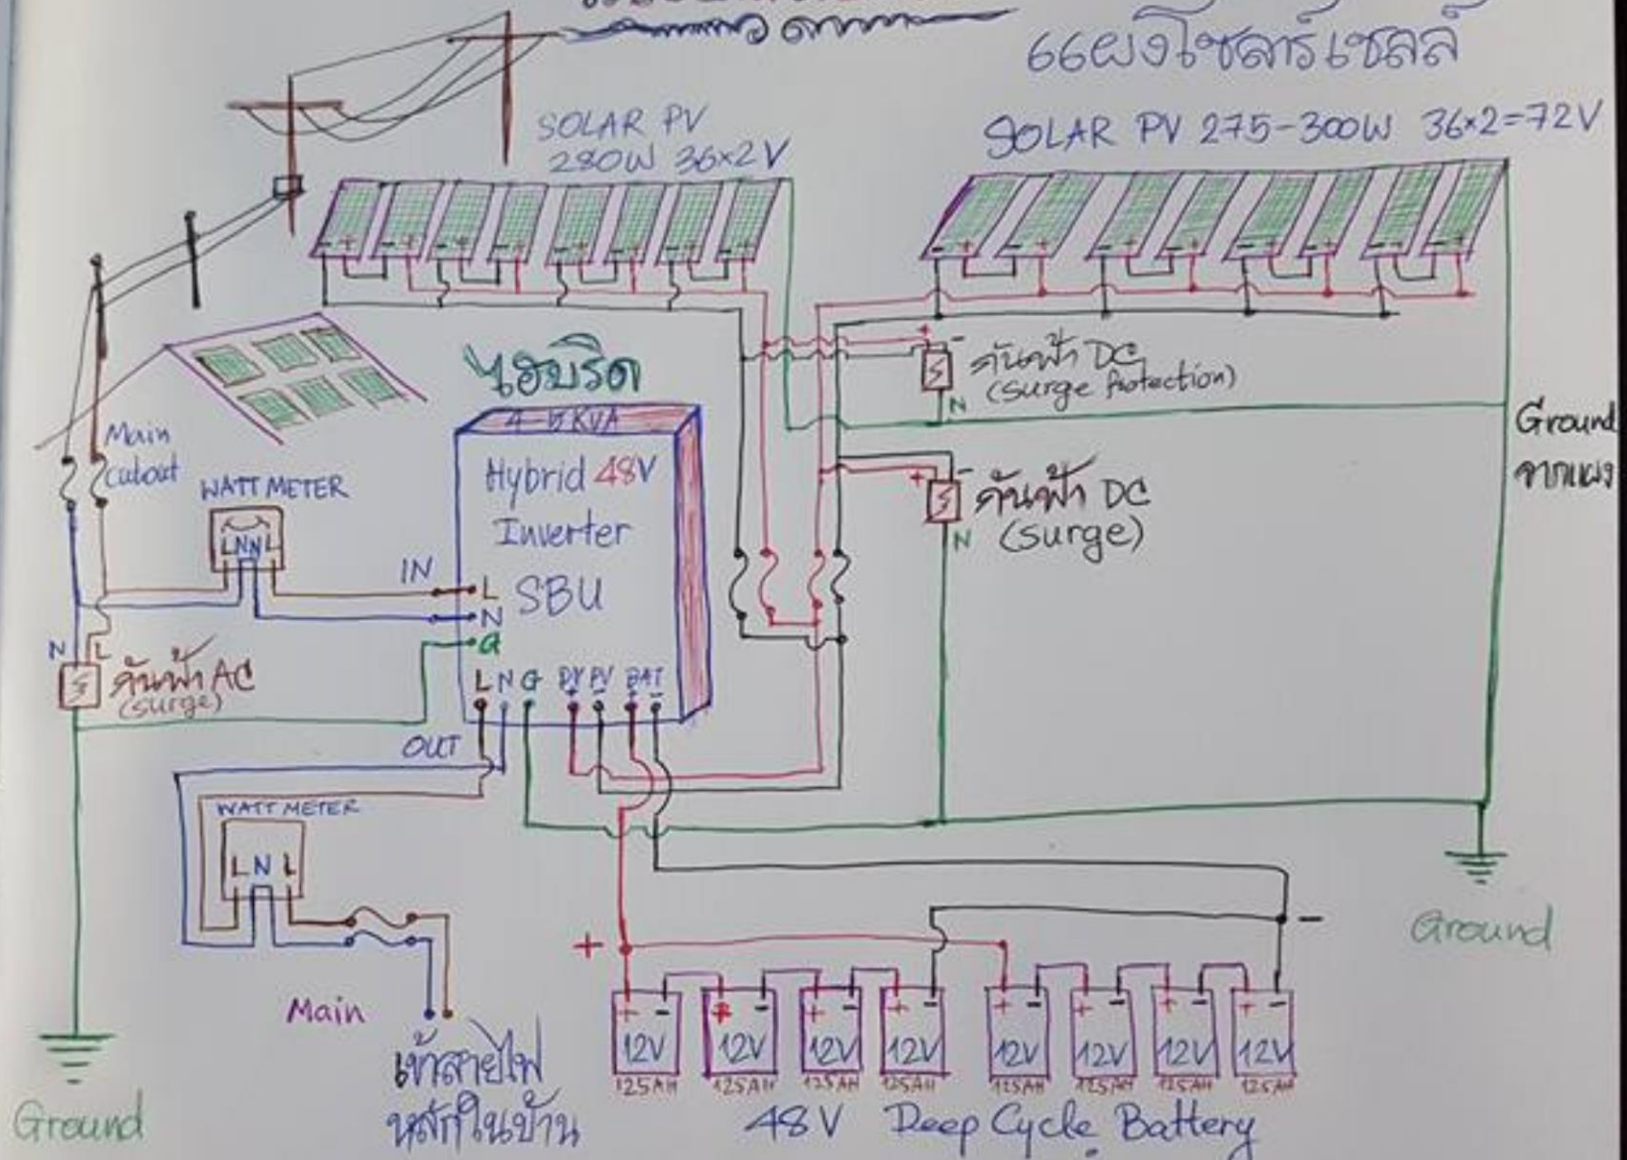 แผงโซลาร์เซลล์
SOLAR PV
280W 36×2V
SOLAR PV 275-300W 36×2=72V
ไฮบริด
4-5 KVA
Hybrid 48V
Inverter
SBU
IN
L
N
G
L N G PV PV BAT
+ - + -
OUT
Main
Cutout
WATT METER
L N N L
N L
กันฟ้า AC
(surge)
+ -
กันฟ้า DC
(Surge Protection)
N
+ -
กันฟ้า DC
(Surge)
N
Ground
จากแผง
WATT METER
L N L
Main
เข้าสายไฟ
หลักในบ้าน
Ground
Ground
+
-
+ - + - + - + - + - + - + - + -
12V 12V 12V 12V 12V 12V 12V 12V
125AH 125AH 125AH 125AH 125AH 125AH 125AH 125AH
48V Deep Cycle Battery